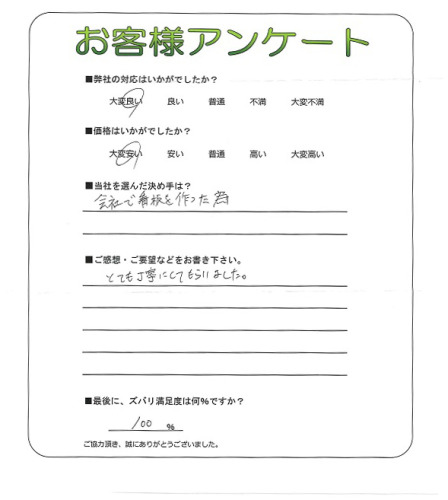 お客様アンケート
■弊社の対応はいかがでしたか?
大変良い 良い 普通 不満 大変不満
■価格はいかがでしたか?
大変安い 安い 普通 高い 大変高い
■当社を選んだ決め手は?
会社で看板を作った為
■ご感想・ご要望などをお書き下さい。
とても丁寧にしてもらいました。
■最後に、ズバリ満足度は何%ですか?
100 %
ご協力頂き、誠にありがとうございました。